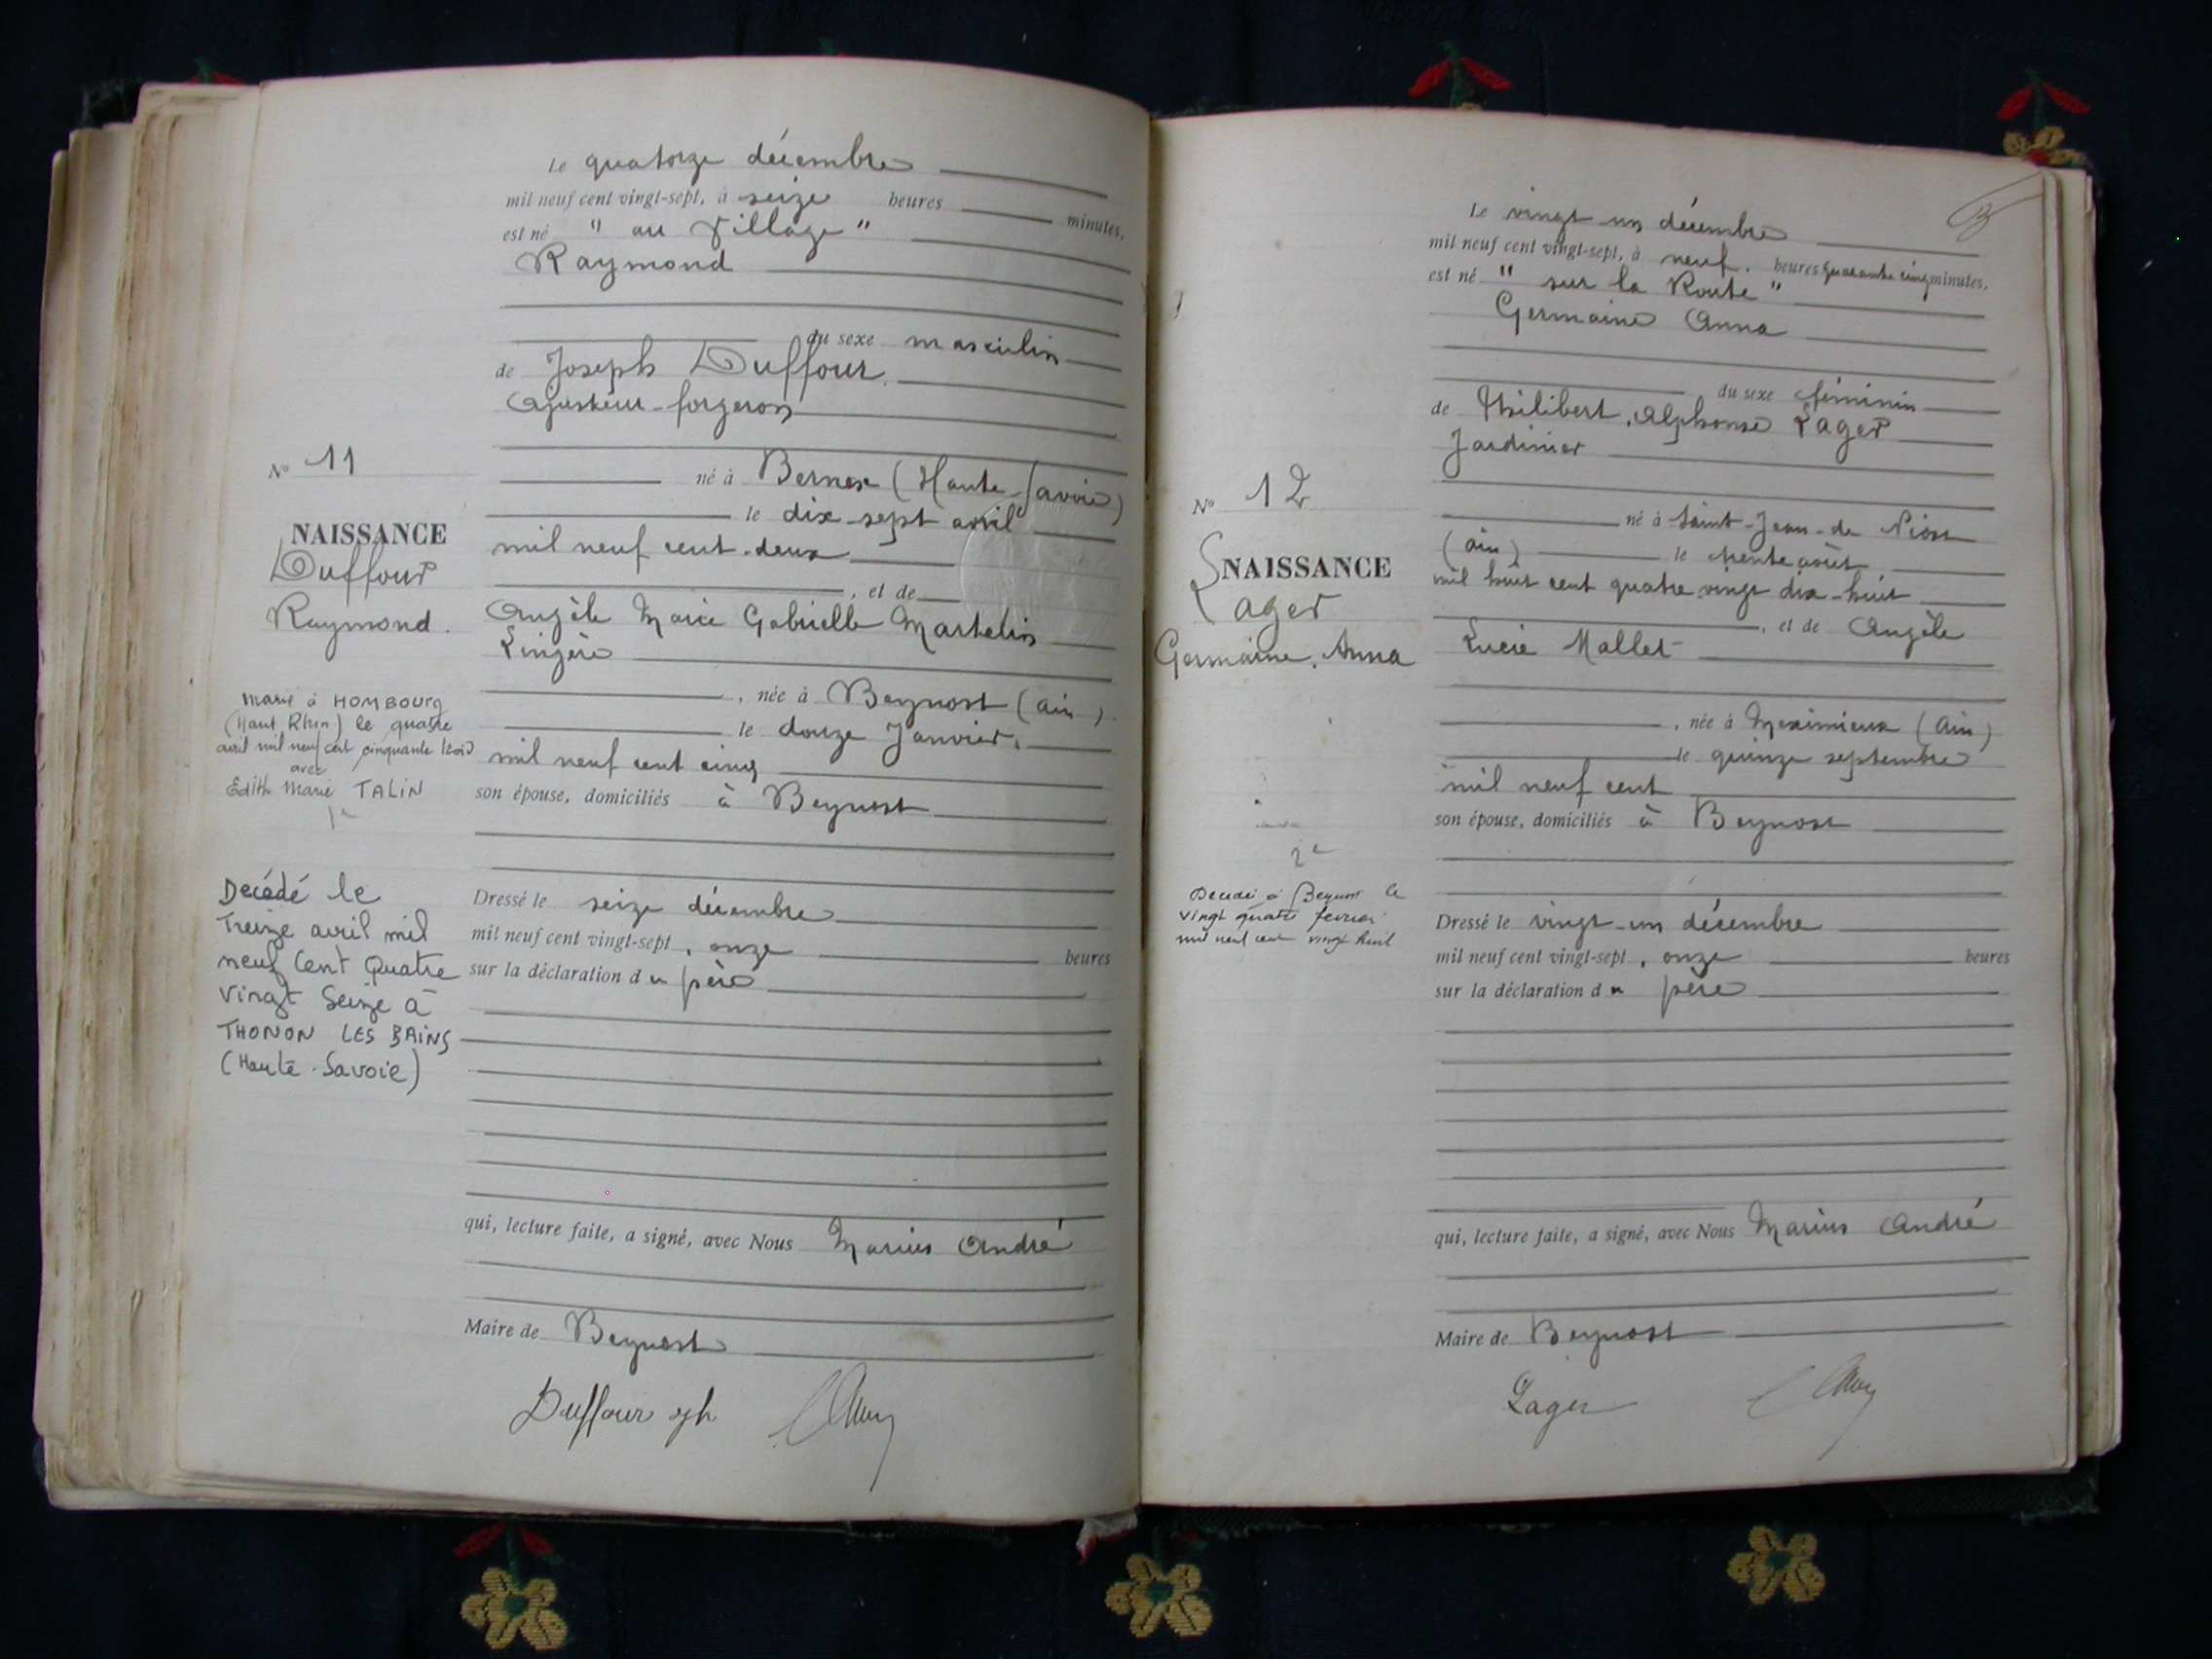 Le quatorze décembre
mil neuf cent vingt-sept, à seize heures minutes,
est né " au Village "
Raymond
du sexe masculin
de Joseph Duffour
Ajusteur-forgeron
né à Bernex (Haute Savoie)
le dix-sept avril
mil neuf cent-deux
, et de
Angèle Marie Gabrielle Martelin
Lingère
, née à Beynost (ain)
le douze Janvier,
mil neuf cent cinq
son épouse, domiciliés à Beynost
Dressé le seize décembre
mil neuf cent vingt-sept, onze heures
sur la déclaration du père
qui, lecture faite, a signé, avec Nous Marius André
Maire de Beynost
Duffour jph
N° 11
NAISSANCE
Duffour
Raymond.
Marié à HOMBOURG
(Haut Rhin) le quatre
avril mil neuf cent cinquante trois
avec
Edith Marie TALIN
Decédé le
Treize avril mil
neuf Cent Quatre
Vingt Seize à
THONON LES BAINS
(Haute-Savoie)
Le vingt un décembre
mil neuf cent vingt-sept, à neuf heures quarante cinq minutes,
est né " sur la Route "
Germaine Anna
du sexe féminin
de Philibert, Alphonse Lager
Jardinier
né à Saint-Jean-de Niost
(ain) le trente août
mil huit cent quatre vingt dix-huit
, et de Angèle
Lucie Mallet
, née à Meximieux (Ain)
le quinze septembre
mil neuf cent
son épouse, domiciliés à Beynost
Dressé le vingt-un décembre
mil neuf cent vingt-sept, onze heures
sur la déclaration du père
qui, lecture faite, a signé, avec Nous Marius André
Maire de Beynost
Lager
N° 12
NAISSANCE
Lager
Germaine, Anna
Decedée à Beynost le
vingt quatre fevrier
mil neuf cent vingt huit